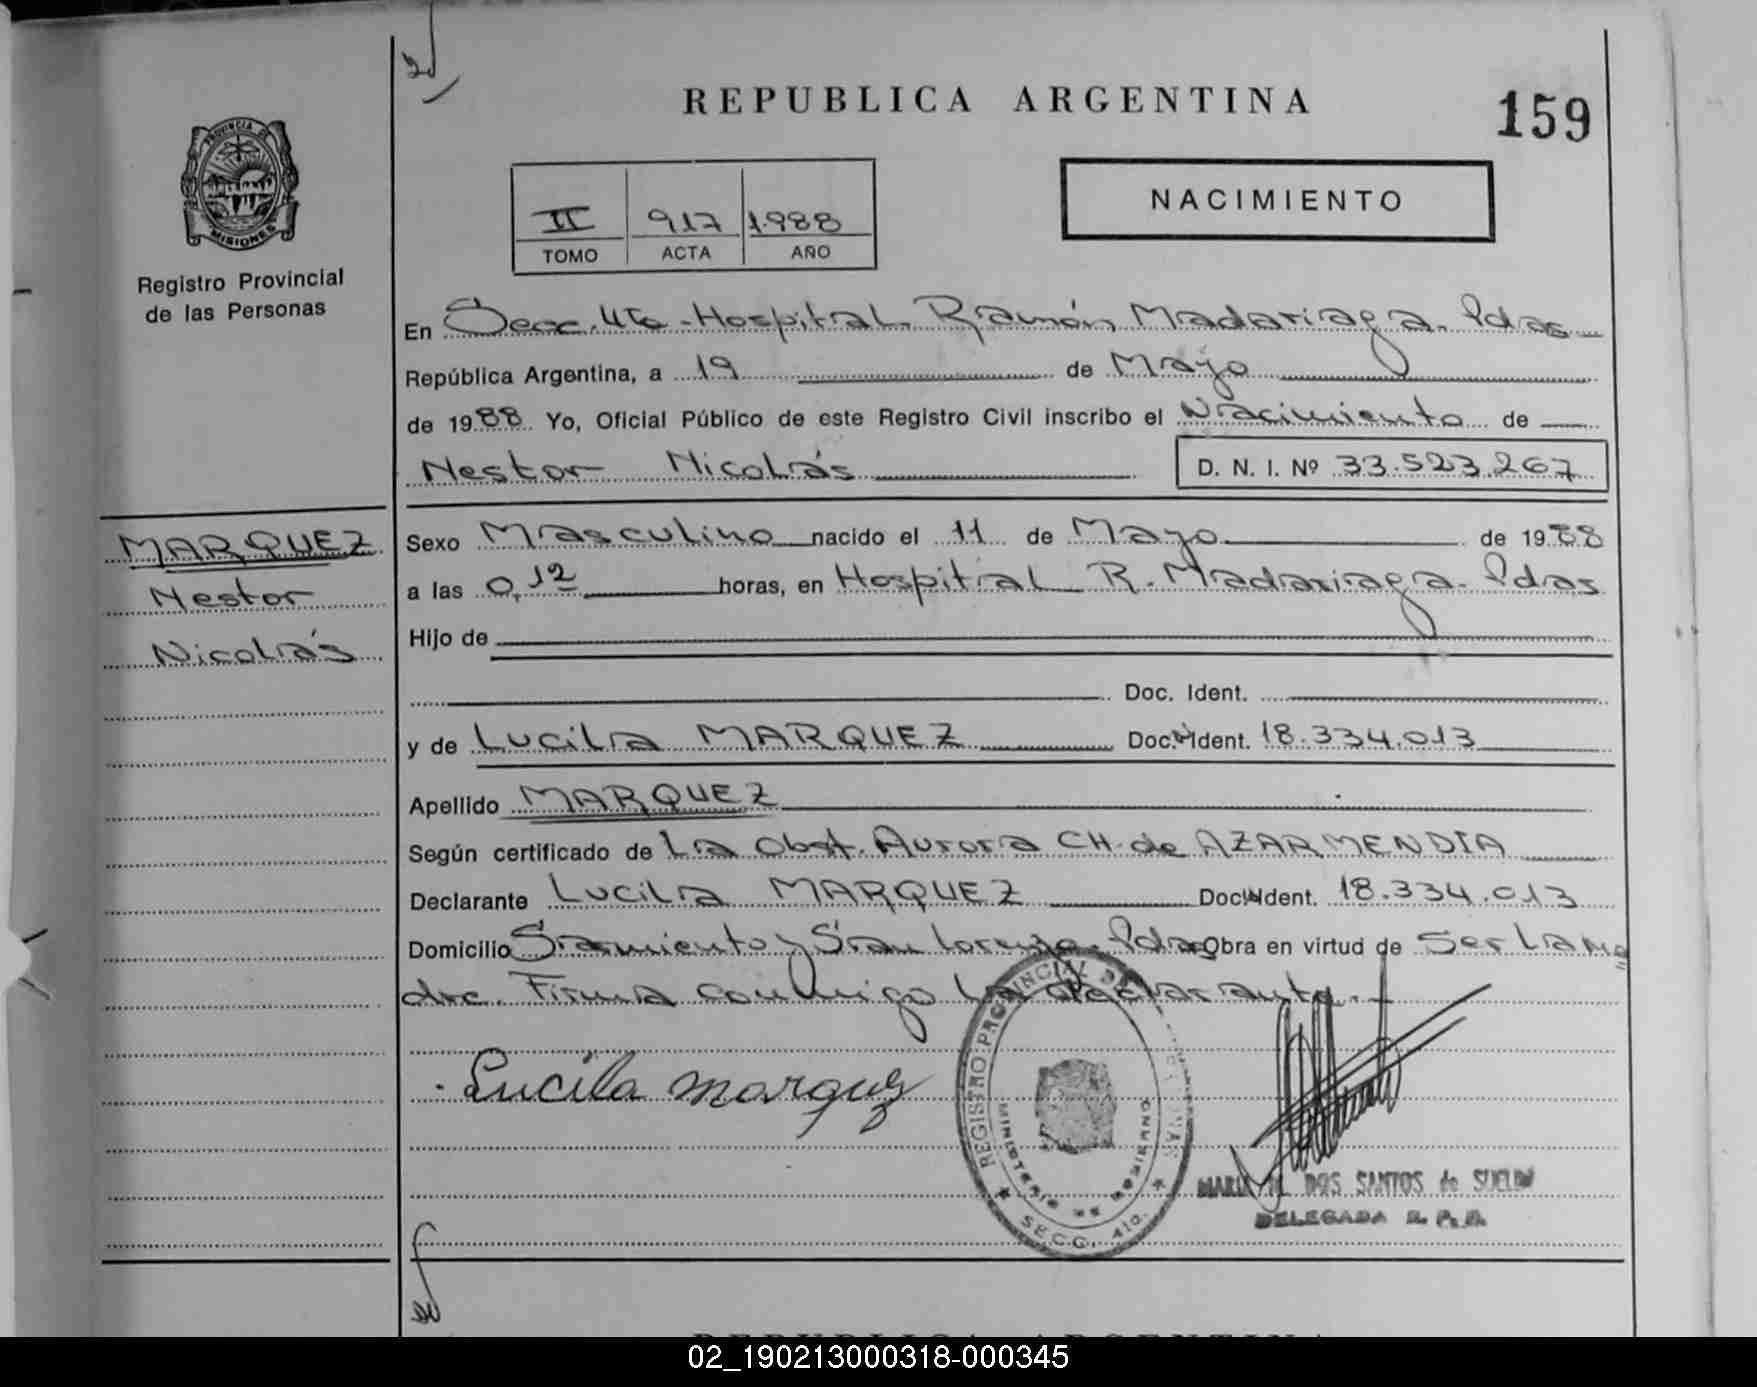 REPUBLICA ARGENTINA
159
PROVINCIA DE
MISIONES
Registro Provincial
de las Personas
II 917 1.988
TOMO ACTA AÑO
NACIMIENTO
En Secc. 4ta - Hospital Ramón Madariaga. Pdas
República Argentina, a 19 de Mayo
de 1988 Yo, Oficial Público de este Registro Civil inscribo el Nacimiento de
Nestor Nicolás D. N. I. Nº 33.523.267
MARQUEZ
Nestor
Nicolás
Sexo Masculino nacido el 11 de Mayo de 1988
a las 0,12 horas, en Hospital R. Madariaga. Pdas
Hijo de
Doc. Ident.
y de Lucila MARQUEZ Doc. Ident. 18.334.013
Apellido MARQUEZ
Según certificado de La Obst. Aurora CH. de AZARMENDIA
Declarante Lucila MARQUEZ Doc. Ident. 18.334.013
Domicilio Sarmiento y San Lorenzo. Pdas Obra en virtud de Ser La Ma
dre. Firma conmigo La declarante.
Lucila marquez
REGISTRO PROVINCIAL DE
MINISTERIO DE GOBIERNO
SECC. 4ta.
MARIA DOS SANTOS de SUELDO
DELEGADA R. P. P.
REPUBLICA ARGENTINA
02_190213000318-000345